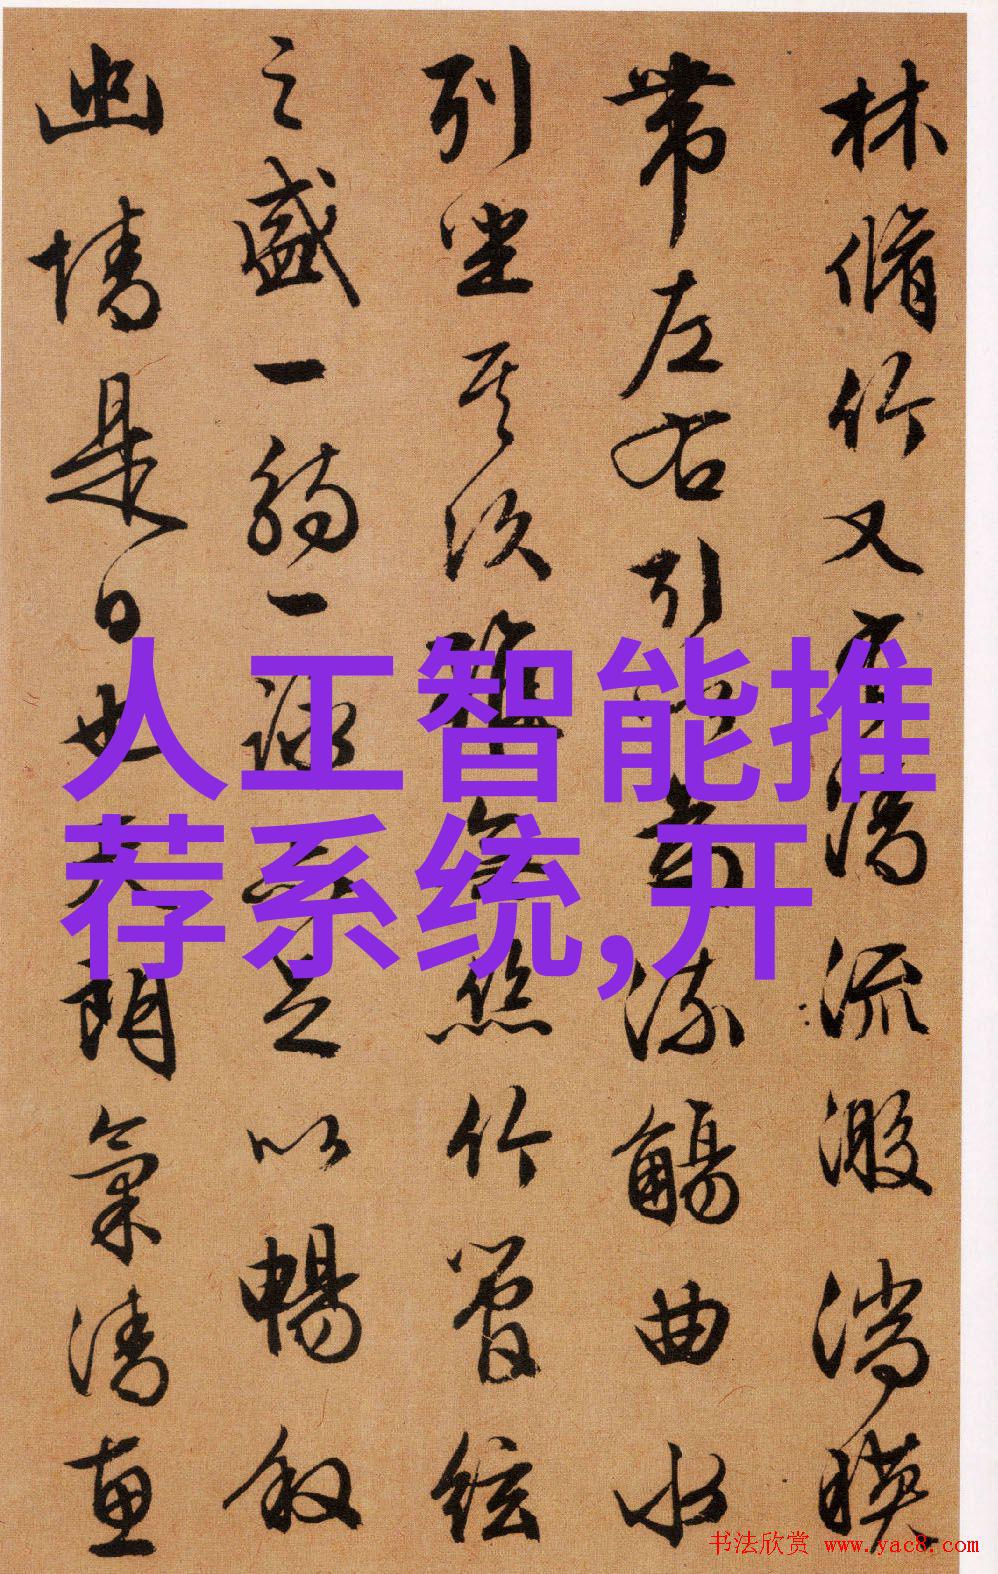 林脩竹又有清流激湍暎
帶左右引以為流觴曲水
列坐其次雖無絲竹管絃
之盛一觴一詠亦足以暢敘
幽情是日也天朗氣清惠
人工智能推
荐系统,开
书法欣赏 www.yac8.com